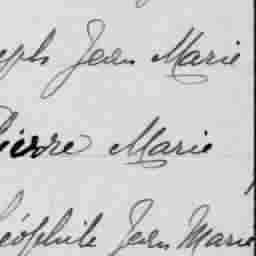 eph Jean Marie
Pierre Marie
éophile Jean Marie